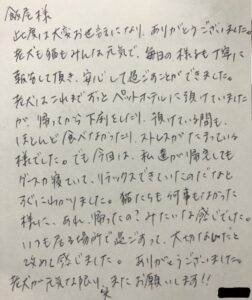 飯尾様
此度は大変お世話になり、ありがとうございました。
老犬も猫もみんな元気で、毎日の様子も丁寧に
報告して頂き、安心して過ごすことができました。
老犬はこれまでずっとペットホテルに預けていました
が、帰ってから下痢をしたり、預けている間も、
ほとんど食べなかったり、ストレスがたまっている
様でした。でも今回は、私達が帰宅しても
グースカ寝ていて、リラックスできていたのだなと
すぐにわかりました。猫たちも何事もなかった
様に、あれ、帰ったの?みたいな感じでした。
いつも居る場所で過ごすって、大切なんだと
改めて感じました。ありがとうございました。
老犬が元気な限り、またお願いします!!